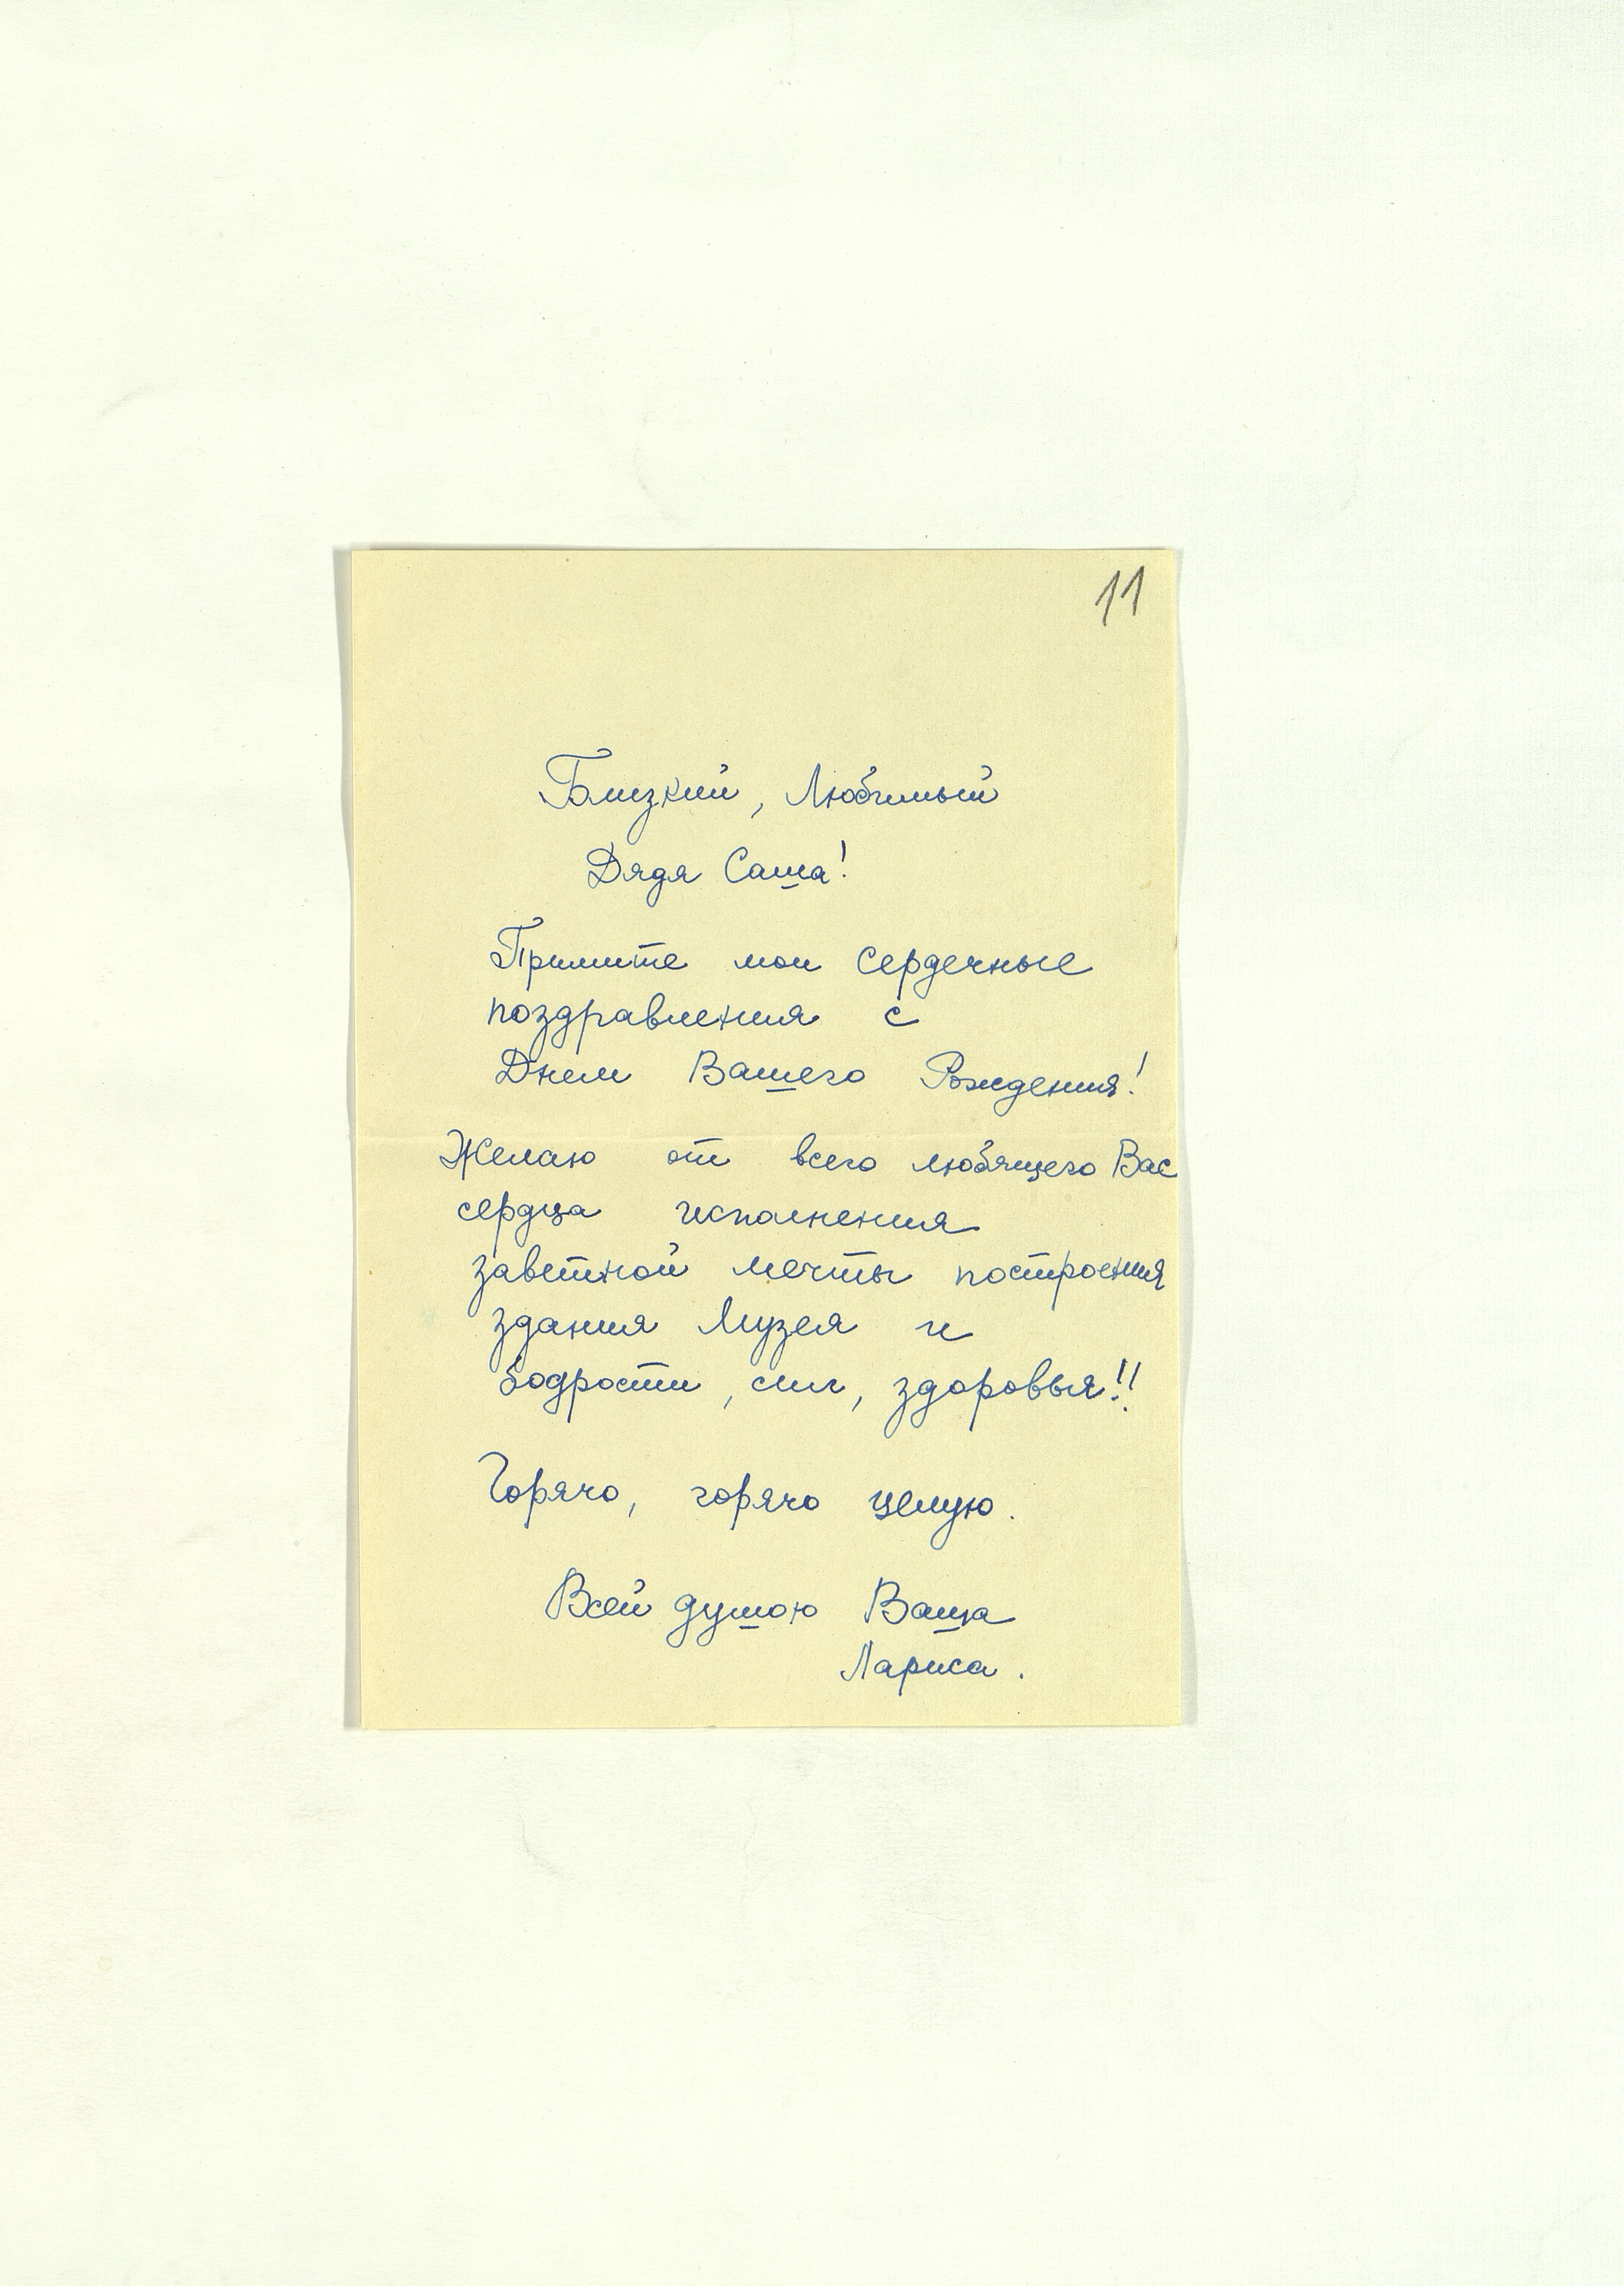 11
Близкий, Любимый
Дядя Саша!
Примите мои сердечные
поздравления с
Днем Вашего Рождения!
Желаю от всего любящего Вас
сердца исполнения
заветной мечты построения
здания Музея и
бодрости, сил, здоровья!!
Горячо, горячо целую.
Всей душою Ваша
Лариса.